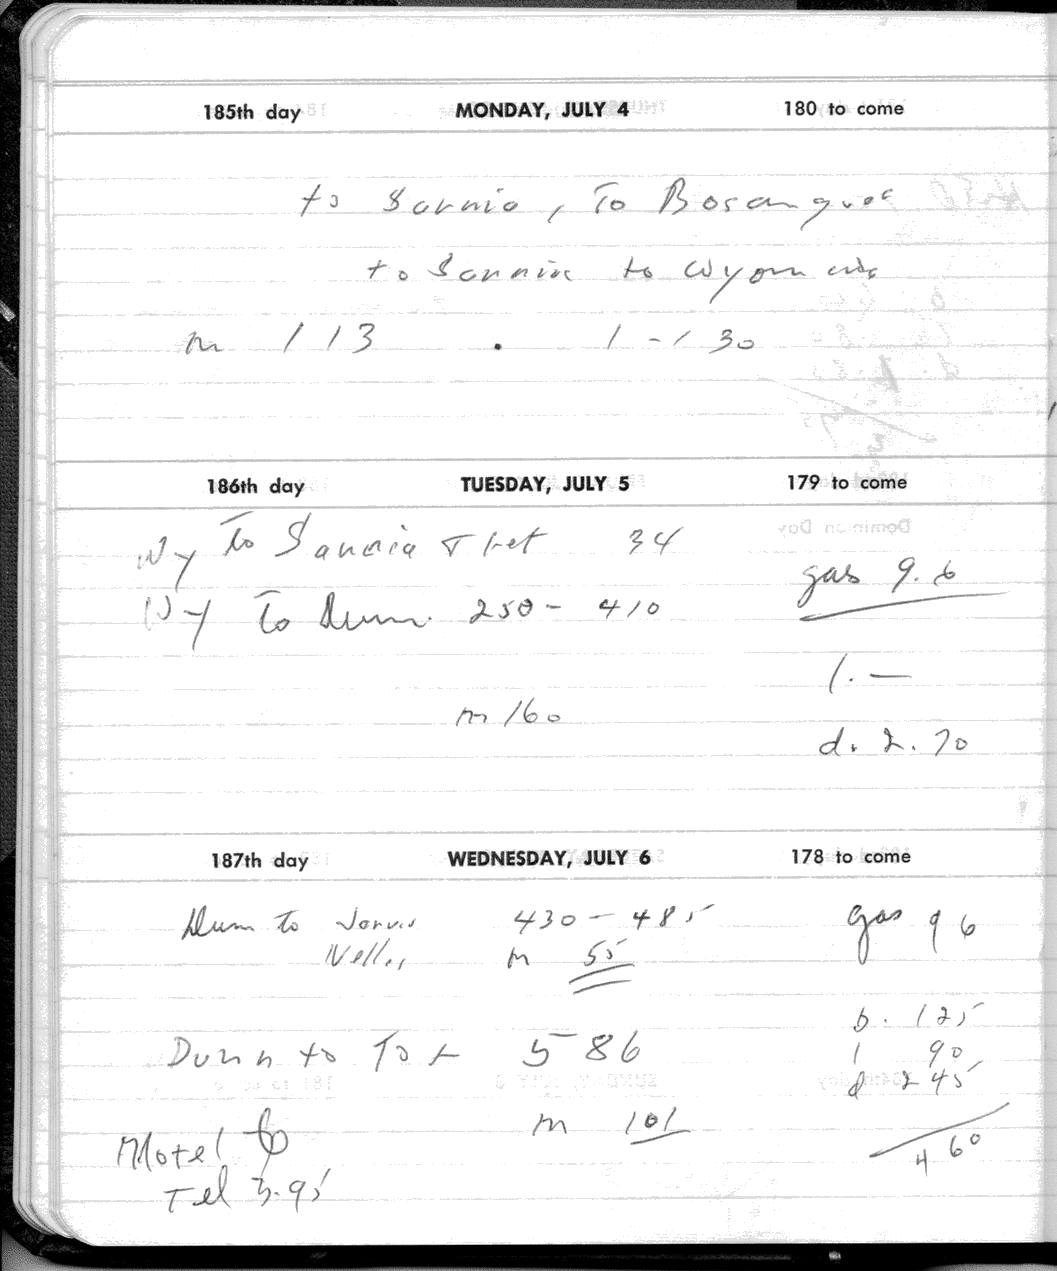 185th day MONDAY, JULY 4 180 to come
to Sarnia, To Bosanquet
to Sarnia to Wyom
m 113 . 1-130
186th day TUESDAY, JULY 5 179 to come
Wy To Sarnia & ret 34
gas 9.6
Wy To Dunn. 250 - 410
1. —
m 160
d. 2.70
187th day WEDNESDAY, JULY 6 178 to come
Dunn to Jarvis 430 - 485 gas 96
Nelles m 55
b. 125
Dunn to Tor 586 l 90
d 245
m 101
460
Motel
Tel 3.95